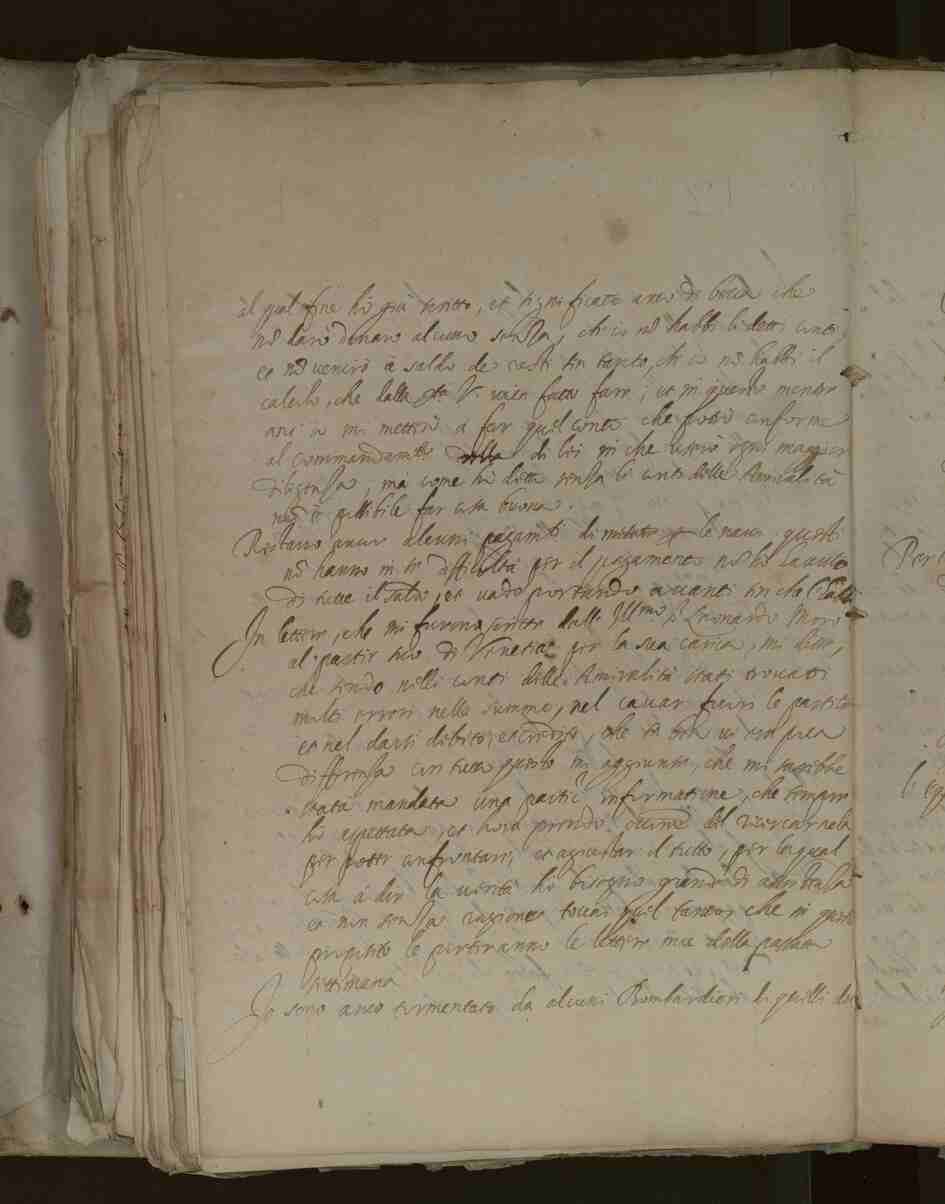 il qual fine hò già scritto, et significato anco di bocca che
nõ darò denaro alcuno senza, ch'io nõ habbi li detti conti
et nõ venirò à saldo de resti sin tanto, ch'io nõ habbi il
calculo, che dalla Stà V. vien fatto fare; et in questo mentre
anco io mi metterò à far quel conto che fosse conforme
al commandamto di lei in che userò ogni maggior
diligenza, ma come hò detto senza li conti delle Amiralità
nõ è possibile far cosa buona.
Restano ancor alcuni pagamti di le nave questi
nõ hanno in se difficoltà per il pagamento nõ hò
di tutte il saldo, et vado portando avanti sin che
In lettere, che mi furono scritte dall' Illmo Sr Leonardo Moro
al partir suo di Venetia per la sua carica, mi disse,
che sendo nelli conti delle Amiralità stati trovati
molti errori nelle summe, nel cavar fuori le partite
et nel darsi debito, e credito, che
differenza con tutto questo mi aggiunse, che mi sarebbe
stata mandata una partic informatione, che sempre
hò aspettata, et hora prendo di ricercarla
per poter confrontarsi, et aggiustar il tutto, per la qual
cosa à dir la verità hò bisogno grande di
et non senza ragione toccai quel tanto, che in questo
proposito le porteranno le lettere mie della passata
settimana
Io sono anco tormentato da alcuni Bombardieri di quelli de